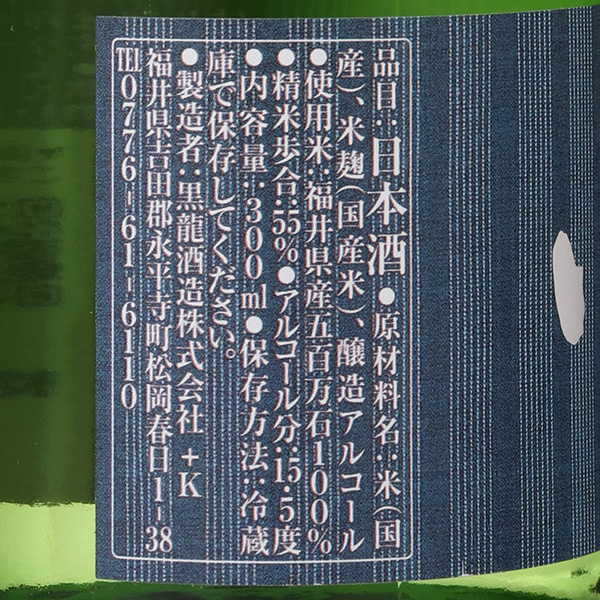 品目：日本酒●原材料名：米（国
産）、米麹（国産米）、醸造アルコール
●使用米：福井県産五百万石100%
●精米歩合：55%●アルコール分：15.5度
●内容量：300ml●保存方法：冷蔵
庫で保存してください。
●製造者：黒龍酒造株式会社 +K
福井県吉田郡永平寺町松岡春日1-38
TEL0776-61-6110